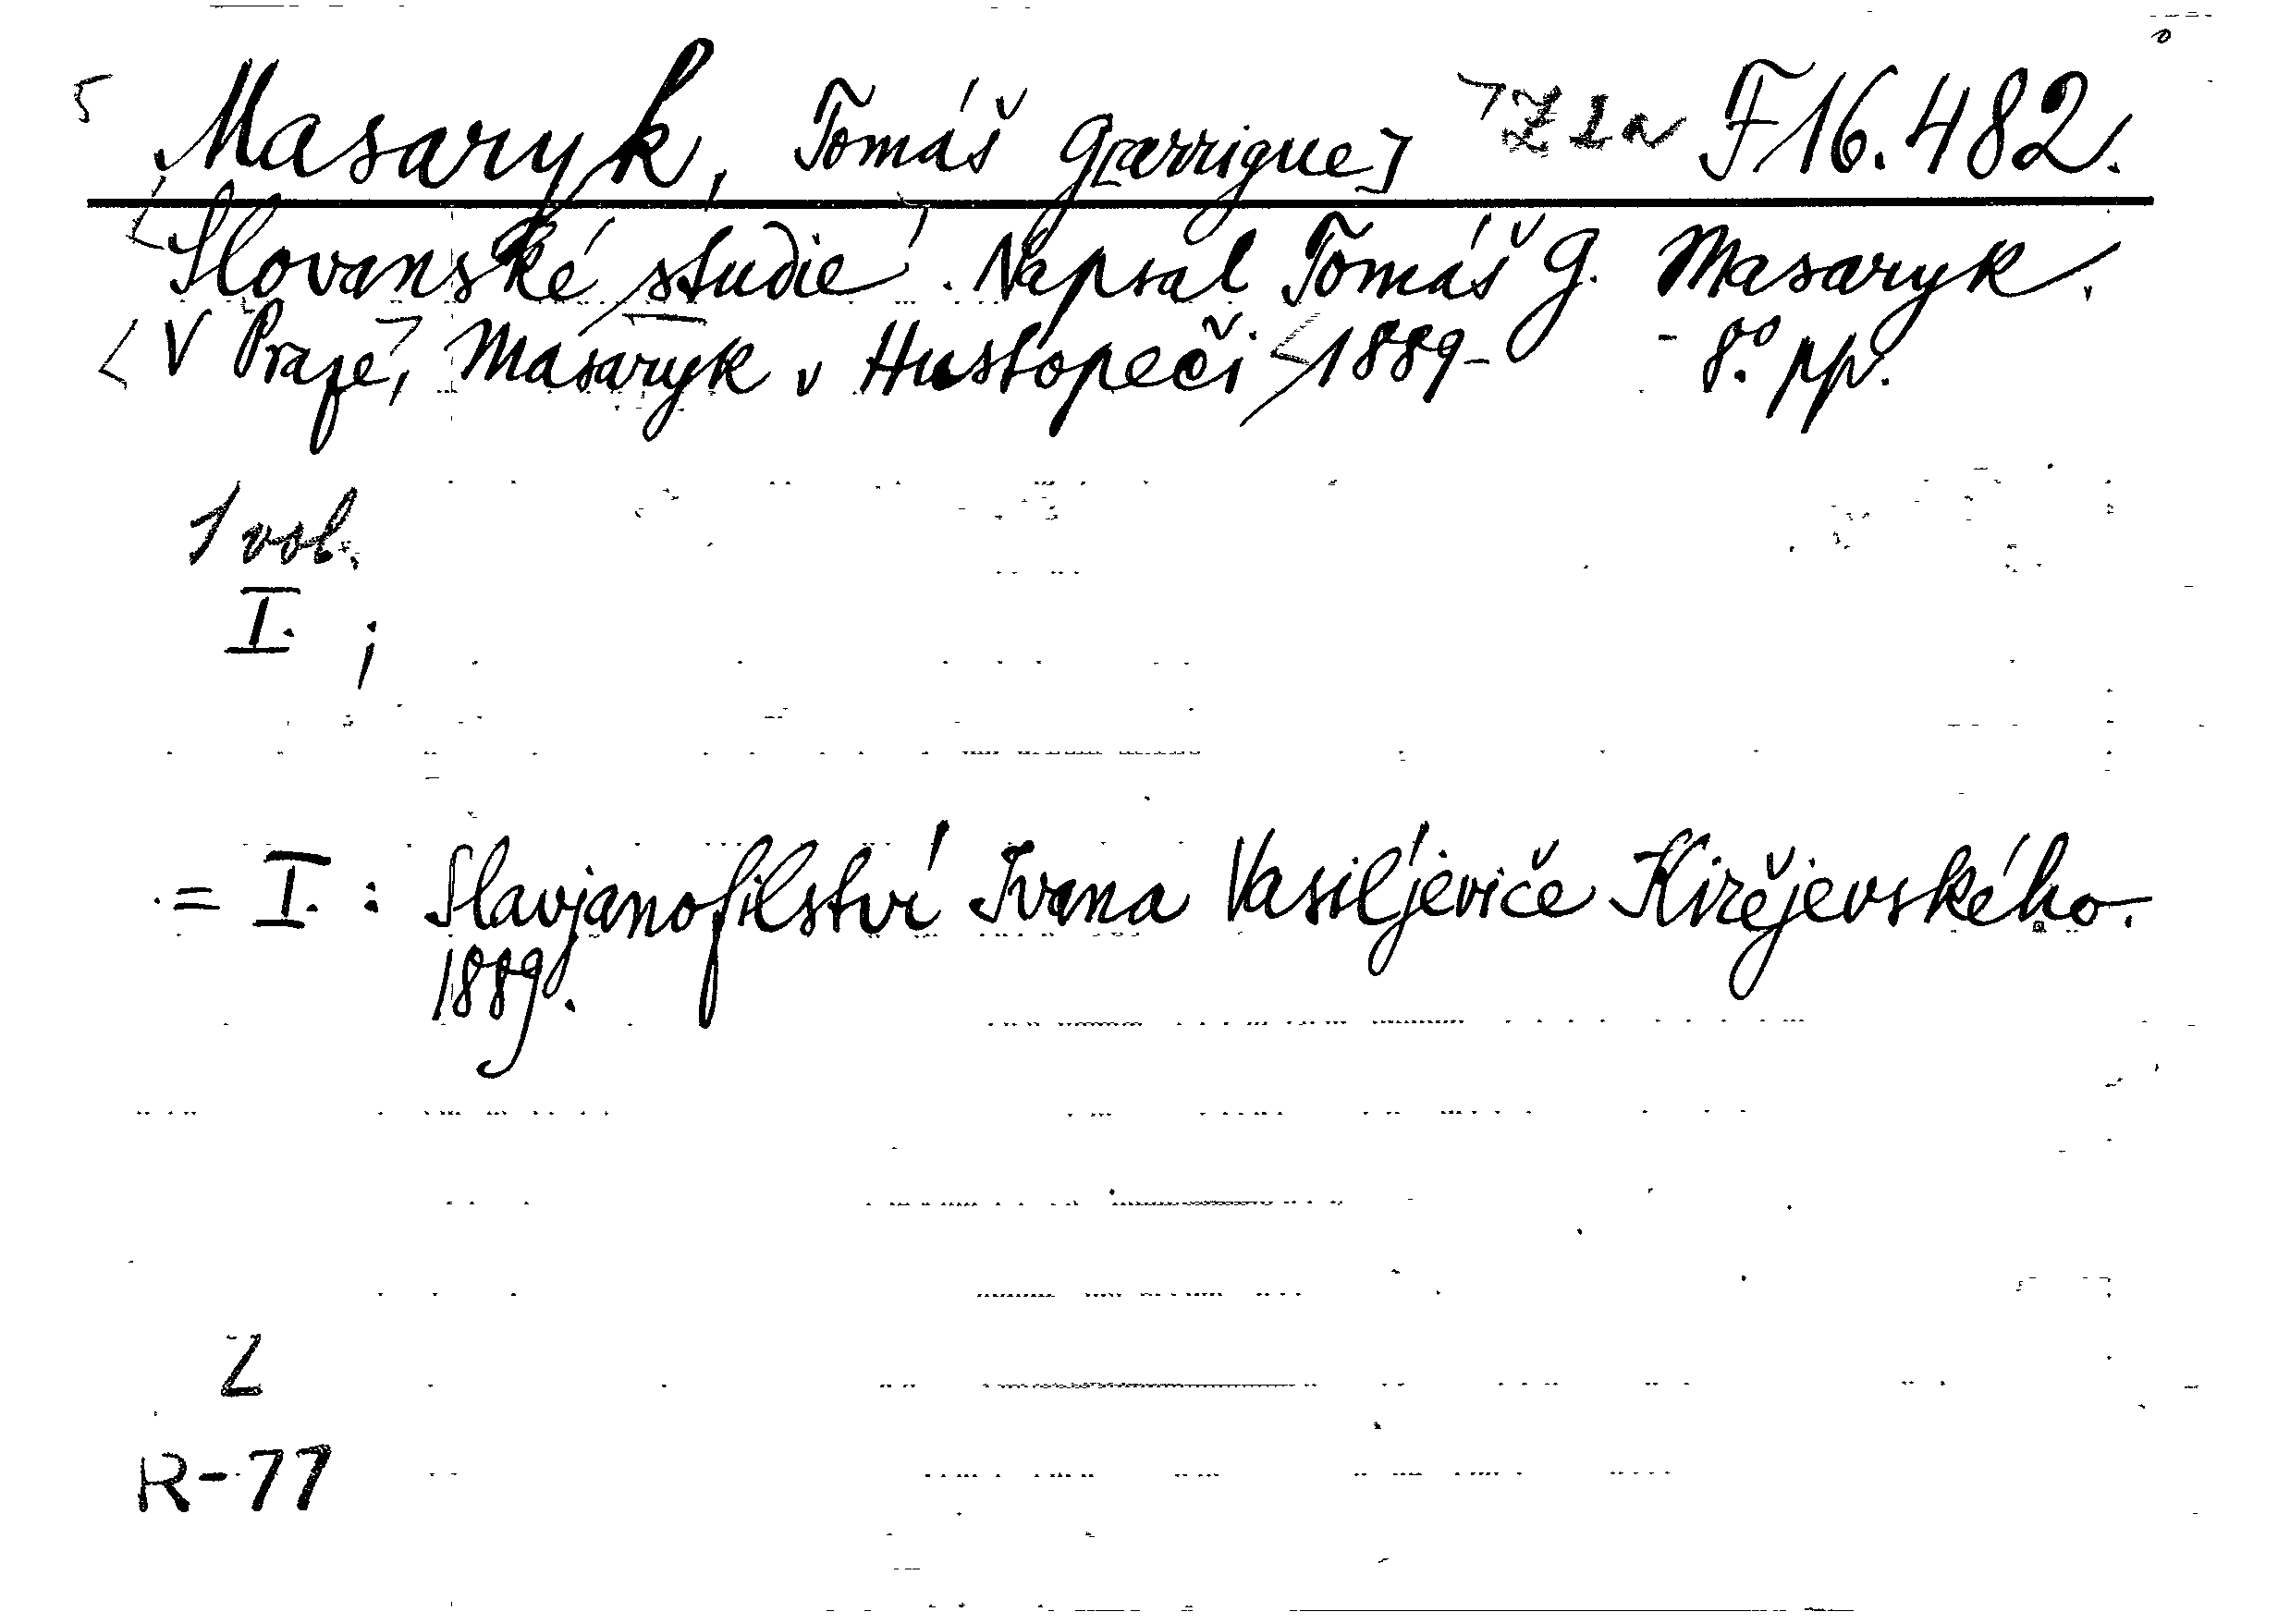 Masaryk, Tomáš G[arrigue] Z 2a F 16.482.
Slovanské studie. Napsal Tomáš G. Masaryk.
V Praze, Masaryk v Hustopeči 1889- - 8.° pp.
1 vol.
I. ;
= I. : Slavjanofilství Ivana Vasiljeviče Kirějevského.
1889.
Z
R-77